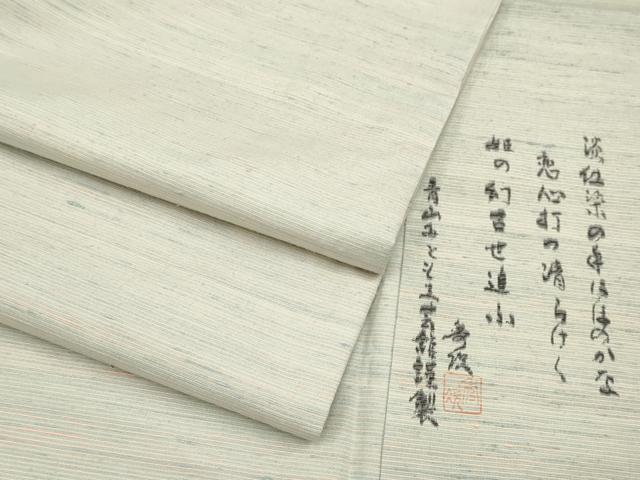 淡紅染の はほのかな
恋心打つ清らけく
姫の幻 せ追ふ
青山みとも工芸館謹製